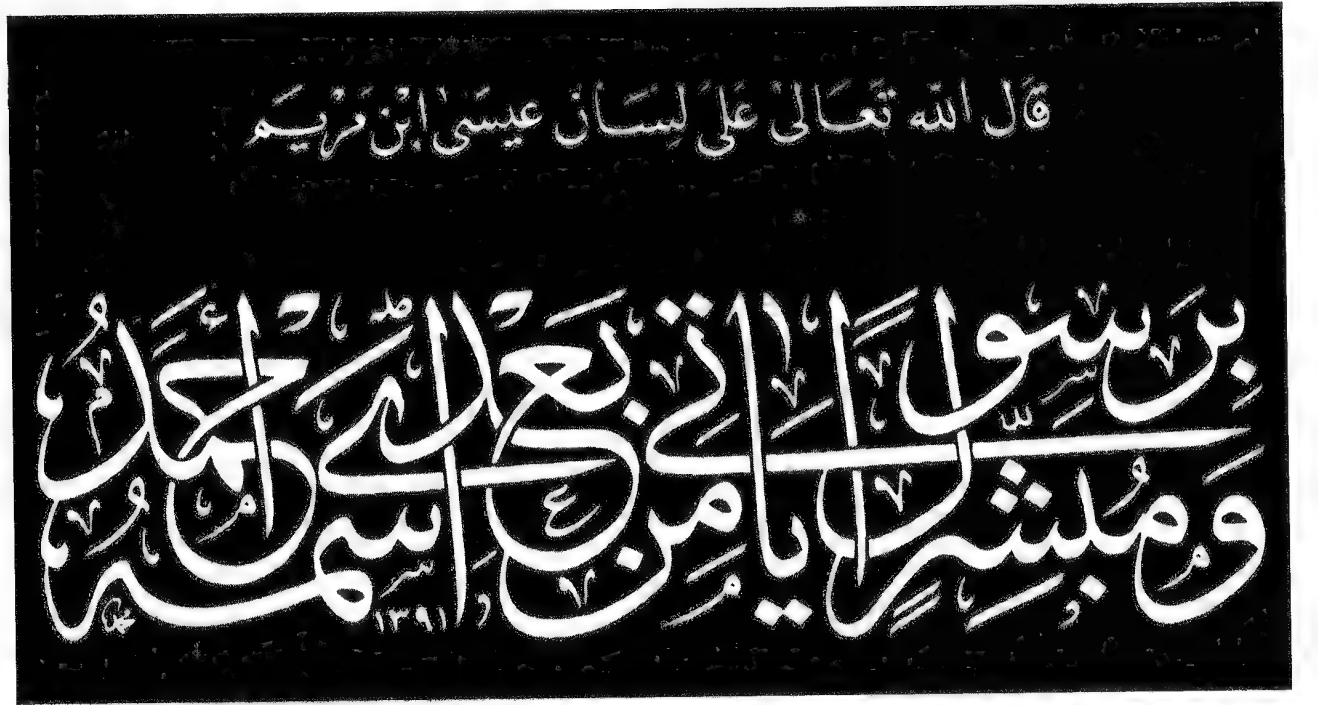 قَالَ اللهُ تَعَالَىٰ عَلَىٰ لِسَانِ عِيسَىٰ ابْنِ مَرْيَمَ
وَمُبَشِّرًا بِرَسُولٍ يَأْتِي مِنْ بَعْدِي اسْمُهُ أَحْمَدُ
١٣٩١